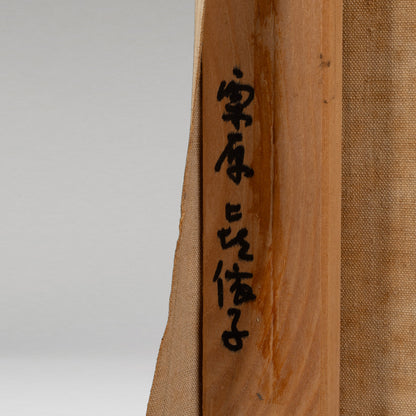 栗原喜依子